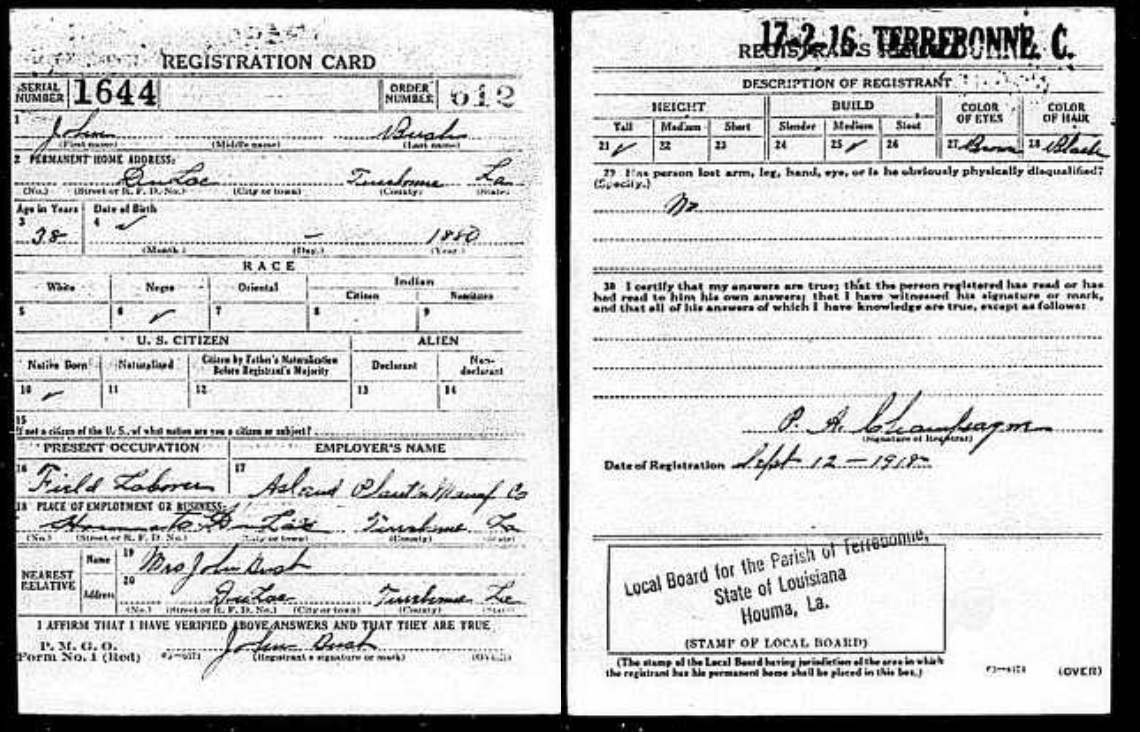 REGISTRATION CARD
SERIAL NUMBER 1644 ORDER NUMBER 612
1 John Bush
(First name) (Middle name) (Last name)
2 PERMANENT HOME ADDRESS:
DuLac Terrebonne La
(No.) (Street or R. F. D. No.) (City or town) (County) (State)
Age in Years Date of Birth
3 4 ✓
38 – 1880
(Month) (Day) (Year)
RACE
White Negro Oriental Indian
Citizen Noncitizen
5 6 ✓ 7 8 9
U. S. CITIZEN ALIEN
Native Born Naturalized Citizen by Father's Naturalization Before Registrant's Majority Declarant Non-declarant
10 ✓ 11 12 13 14
15
If not a citizen of the U. S., of what nation are you a citizen or subject?
PRESENT OCCUPATION EMPLOYER'S NAME
16 Field Laborer 17 Asland Plant'n Manuf Co
18 PLACE OF EMPLOYMENT OR BUSINESS:
DuLac Terrebonne La
(No.) (Street or R. F. D. No.) (City or town) (County) (State)
NEAREST RELATIVE Name 19 Mrs John Bush
Address 20 DuLac Terrebonne La
(No.) (Street or R. F. D. No.) (City or town) (County) (State)
I AFFIRM THAT I HAVE VERIFIED ABOVE ANSWERS AND THAT THEY ARE TRUE
P. M. G. O.
Form No. 1 (Red) John Bush
(Registrant's signature or mark) (OVER)
17-2-16 TERREBONNE, C.
REGISTRAR'S
DESCRIPTION OF REGISTRANT
HEIGHT BUILD COLOR OF EYES COLOR OF HAIR
Tall Medium Short Slender Medium Stout
21 ✓ 22 23 24 25 ✓ 26 27 Brown 28 Black
29 Has person lost arm, leg, hand, eye, or is he obviously physically disqualified?
(Specify.)
No
30 I certify that my answers are true; that the person registered has read or has
had read to him his own answers; that I have witnessed his signature or mark,
and that all of his answers of which I have knowledge are true, except as follows:
P. A. Champagne
(Signature of Registrar)
Date of Registration Sept 12 – 1918
Local Board for the Parish of Terrebonne,
State of Louisiana
Houma, La.
(STAMP OF LOCAL BOARD)
(The stamp of the Local Board having jurisdiction of the area in which
the registrant has his permanent home shall be placed in this box.)
(OVER)